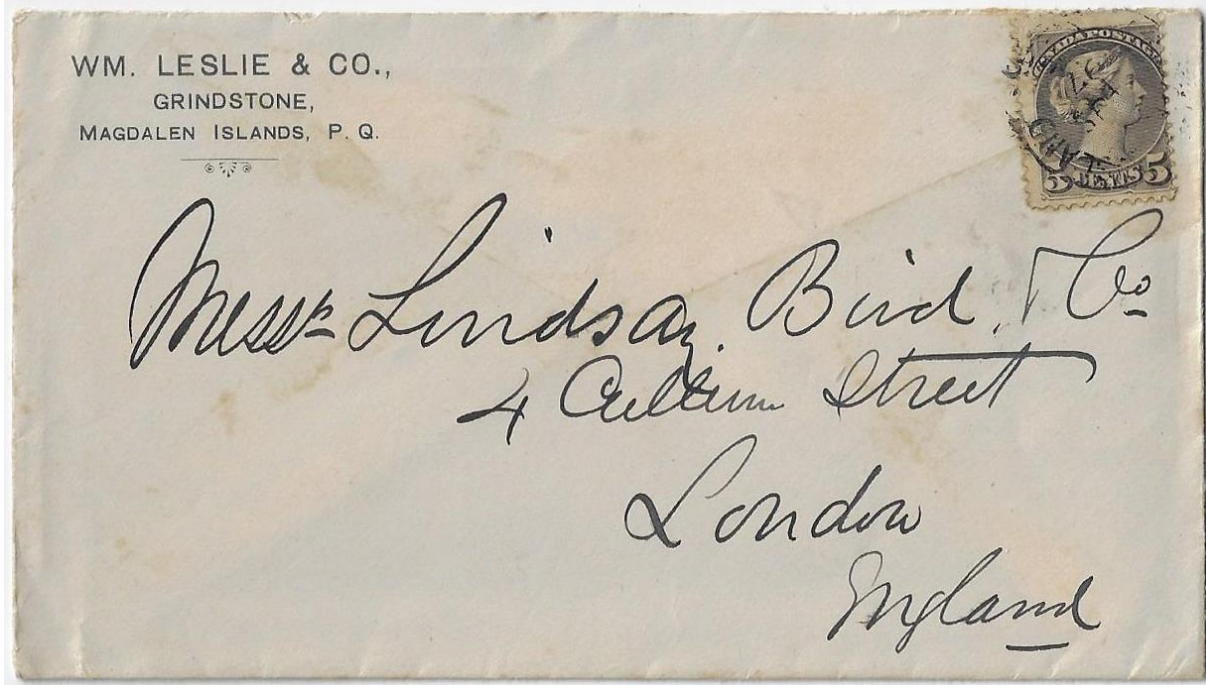 WM. LESLIE & CO.,
GRINDSTONE,
MAGDALEN ISLANDS, P. Q.
CANADA POSTAGE
5 CENTS 5
Messrs Lindsay, Bird, & Co
4 Cullum Street
London
England